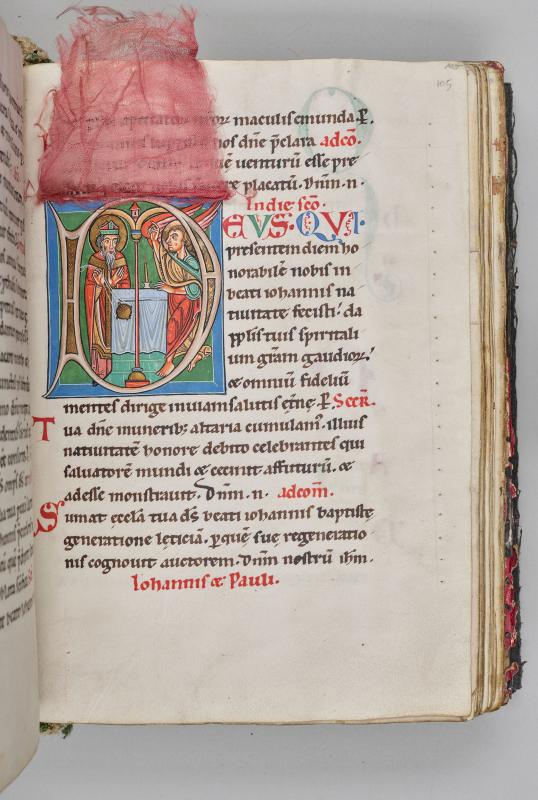 105
maculis emunda. P.
nos dne p̄clara adcō.
uē uenturū esse pre
re placatū. Dn̄m. n.
In die sc̄o.
DEVS. QVI.
presentem diem ho
norabilē nobis in
beati iohannis na
tiuitate fecisti. da
pp̄lis tuis spiritali
um gr̄am gaudiorꝫ.
& omniū fidelium
mentes dirige in uiam salutis et̄nę. P. Secr̄.
Tua dn̄e munerib; altaria cumulam᾽. illius
natiuitatē honore debito celebrantes qui
saluatorē mundi & cecinit affuturū. &
adesse monstrauit. Dn̄m. n. adcom̄.
Sumat eccl̄a tua d̄s beati iohannis baptistę
generatione lęticiā. p̄quē suę regeneratio
nis cognouit auctorem. Dn̄m nostrū ihm̄.
Iohannis & Pauli.